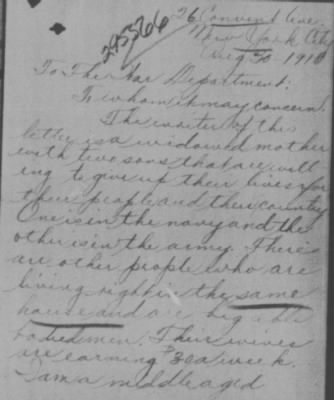 295366
26 Convent Ave.
New York City
Aug 30 1918
To The War Department:
To whom it may concern,
The writer of this
letter is a widowed mother
with two sons that are will
ing to give up their lives for
their people and their country
One is in the navy and the
other is in the army. There
are other people who are
living right in the same
house and are big able
bodied men. Their wives
are earning $30 a week.
I am a middle aged